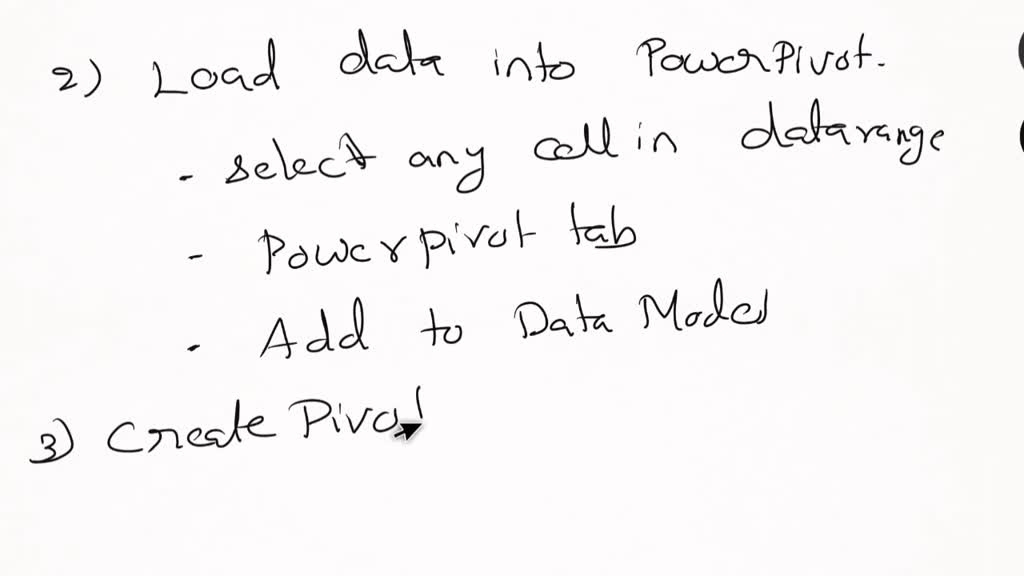 2) Load data into PowerPivot.
- select any cell in datarange
- Powerpivot tab
- Add to Data Model
3) Create Pivot